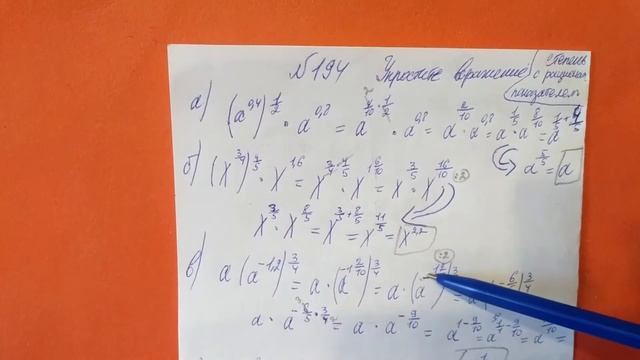 №194 Упростите выражение (степень с рационал. показателем)
а) (a^0,4)^1/2 · a^0,8 = a^4/10·1/2 · a^0,8 = a^2/10 · a^0,8 = a^1/5 · a^8/10 = a^1/5+4/5
a^5/5 = a
б) (x^3/4)^4/5 · x^1,6 = x^3/4·4/5 · x^16/10 = x^3/5 · x^16/10 :2
x^3/5 · x^8/5 = x^3/5+8/5 = x^11/5 = x^2,2
в) a(a^-1,2)^3/4 = a·(a^-1 2/10)^3/4 = a·(a^-12/10)^3/4 = a(a^-6/5)^3/4 :2
a · a^-6/5·3/4 = a · a^-9/10 = a^1-9/10 = a^1/1-9/10 = a^1/10 =